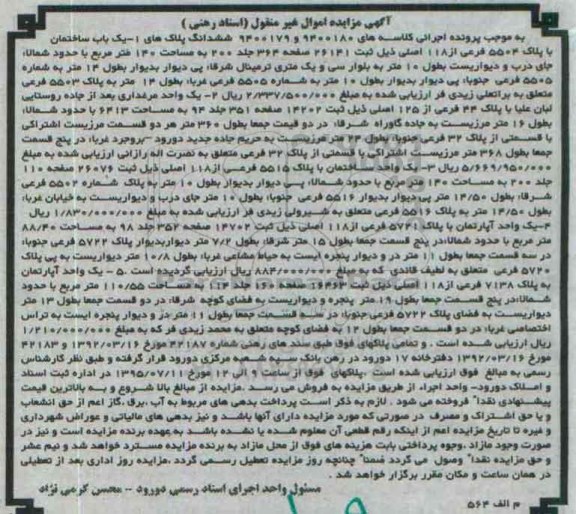 آگهی مزایده اموال غیر منقول (اسناد رهنی)
به موجب پرونده اجرائی کلاسه های ۹۴۰۰۱۸۰ و ۹۴۰۰۱۷۹ ششدانگ پلاک های ۱-یک باب ساختمان
با پلاک ۵۵۰۴ فرعی از۱۱۸ اصلی ذیل ثبت ۲۶۱۴۱ صفحه ۳۶۴ جلد ۲۰۰ به مساحت ۱۴۰ متر مربع با حدود شمالا:
جای درب و دیواریست بطول ۱۰ متر به بلوار سی و یک متری ترمینال شرقا: پی دیوار بدیوار بطول ۱۴ متر به شماره
۵۵۰۵ فرعی جنوبا: پی دیوار بدیوار بطول ۱۰ متر به شماره ۵۵۰۵ فرعی غربا: بطول ۱۴ متر به پلاک ۵۵۰۳ فرعی
متعلق به براتعلی زیدی فر ارزیابی شده به مبلغ ۲/۳۳۷/۵۰۰/۰۰۰ ریال ۲- یک واحد مرغداری بعد از جاده روستایی
لبان علیا با پلاک ۴۴ فرعی از ۱۲۵ اصلی ذیل ثبت ۱۴۲۰۲ صفحه ۳۵۱ جلد ۹۴ به مساحت ۶۴۱۳ با حدود شمالا:
بطول ۱۶ متر مرزیست به جاده گاوراه شرقا: در دو قیمت جمعا بطول ۳۶۰ متر هر دو قسمت مرزیست اشتراکی
با قسمتی از پلاک ۳۲ فرعی جنوبا: بطول ۲۴ متر مرزیست به حریم جاده جدید دورود -بروجرد غربا: در پنج قسمت
جمعا بطول ۳۶۸ متر مرزیست اشتراکی با قسمتی از پلاک ۳۲ فرعی متعلق به نصرت اله رازانی ارزیابی شده به مبلغ
۵/۶۶۹/۹۵۰/۰۰۰ ریال ۳- یک واحد ساختمان با پلاک ۵۵۱۵ فرعی از۱۱۸ اصلی ذیل ثبت ۲۶۰۷۶ صفحه ۱۱۰
جلد ۲۰۰ به مساحت ۱۴۰ متر مربع با حدود شمالا: پی دیوار بدیوار بطول ۱۰ متر به پلاک شماره ۵۵۰۲ فرعی
شرقا: بطول ۱۴/۵۰ متر پی دیوار بدیوار ۵۵۱۶ فرعی جنوبا: بطول ۱۰ متر جای درب و دیواریست به خیابان غربا:
بطول ۱۴/۵۰ متر به پلاک ۵۵۱۶ فرعی متعلق به شیرولی زیدی فر ارزیابی شده به مبلغ ۱/۸۳۰/۰۰۰/۰۰۰ ریال
۴-یک واحد آپارتمان با پلاک ۵۷۴۱ فرعی از۱۱۸ اصلی ذیل ثبت ۱۴۷۰۲ صفحه ۳۵۲ جلد ۹۸ به مساحت ۸۸/۴۰
متر مربع با حدود شمالا:در پنج قسمت جمعا بطول ۱۵ متر شرقا: بطول ۷/۲ متر دیواربدیوار پلاک ۵۷۲۲ فرعی جنوبا:
در سه قسمت جمعا بطول ۱۱ متر در و دیوار پنجره ایست به حیاط مشاعی غربا: بطول ۱۰/۸ متر دیواریست به پی پلاک
۵۷۲۰ فرعی متعلق به لطیف قائدی که به مبلغ ۸۸۴/۰۰۰/۰۰۰ ریال ارزیابی گردیده است .۵ - یک واحد آپارتمان
به پلاک ۷۱۳۸ فرعی از۱۱۸ اصلی ذیل ثبت ۱۶۴۶۳ صفحه ۱۶۰ جلد به مساحت ۱۱۰/۵۵ متر مربع با حدود
شمالا:در پنج قسمت جمعا بطول ۱۹ متر پنجره و دیواریست به فضای کوچه شرقا: در دو قسمت جمعا بطول ۱۳ متر
دیواریست به فضای پلاک ۵۷۲۲ فرعی جنوبا: در سه قسمت جمعا بطول ۱۱ متر در و دیوار پنجره ایست به تراس
اختصاصی غربا: در دو قسمت جمعا بطول ۱۲ به فضای کوچه متعلق به محمد زیدی فر که به مبلغ ۱/۲۱۰/۰۰۰/۰۰۰
ریال ارزیابی شده است . و تمامی پلاکهای فوق طبق سند های رهنی شماره ۴۲۱۸۷ مورخ ۱۳۹۲/۰۳/۱۶ و ۴۲۱۸۳
مورخ ۱۳۹۲/۰۳/۱۶ دفترخانه ۱۷ دورود در رهن بانک سپه شعبه مرکزی دورود قرار گرفته و طبق نظر کارشناس
رسمی به مبالغ فوق ارزیابی شده است .پلاکهای فوق از ساعت ۹ الی ۱۲ مورخ ۱۳۹۵/۰۷/۱۱ در اداره ثبت اسناد
و املاک دورود- واحد اجراء از طریق مزایده به فروش می رسد .مزایده از مبالغ بالا شروع و به بالاترین قیمت
پیشنهادی نقدا" فروخته می شود . لازم به ذکر است پرداخت بدهی های مربوط به آب ،برق ،گاز اعم از حق انشعاب
و یا حق اشتراک و مصرف در صورتی که مورد مزایده دارای آنها باشد و نیز بدهی های مالیاتی و عوراض شهرداری
و غیره تا تاریخ مزایده اعم از اینکه رقم قطعی آن معلوم شده یا نشده باشد به عهده برنده مزایده است و نیز در
صورت وجود مازاد ،وجوه پرداختی بابت هزینه های فوق از محل مازاد به برنده مزایده مسترد خواهد شد و نیم عشر
و حق مزایده نقدا" وصول می گردد ضمنا" چنانچه روز مزایده تعطیل رسمی گردد ،مزایده روز اداری بعد از تعطیلی
در همان ساعت و مکان مقرر برگزار خواهد شد .
مسئول واحد اجرای اسناد رسمی دورود -- محسن کرمی نژاد
م الف ۵۶۴